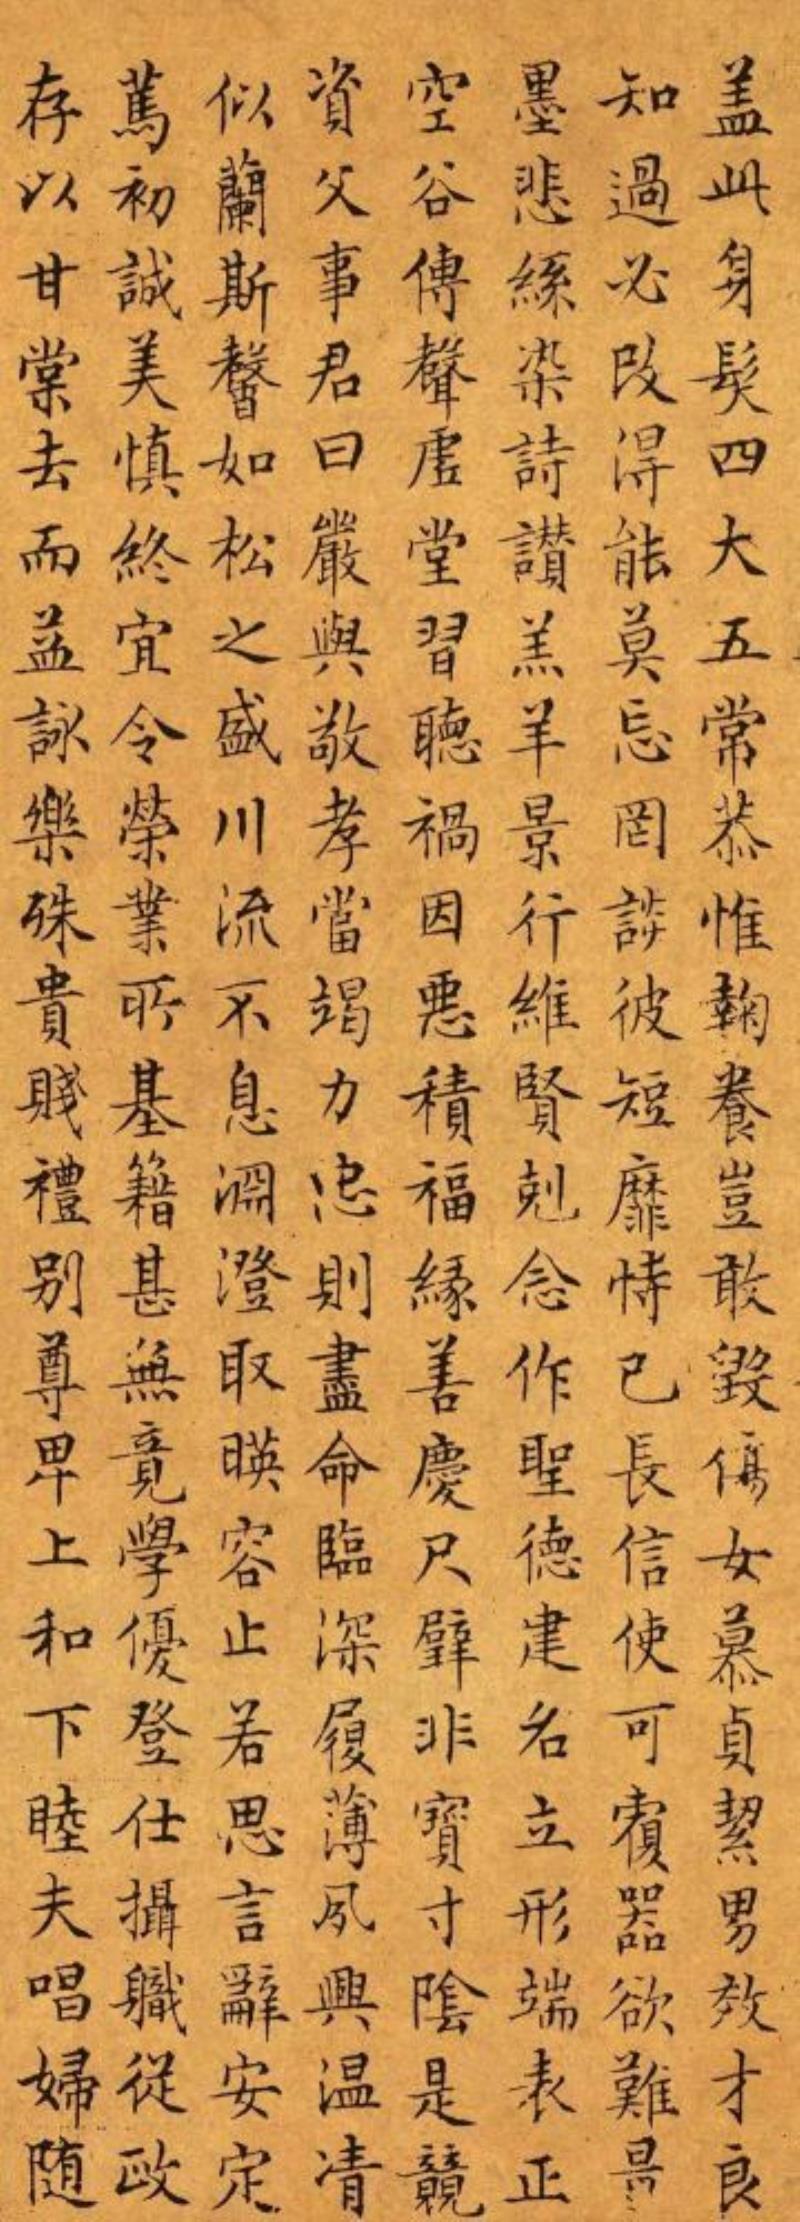 盖此身髮四大五常恭惟鞠養豈敢毀傷女慕貞絜男效才良
知過必改得能莫忘罔談彼短靡恃已長信使可覆器欲難量
墨悲絲染詩讚羔羊景行維賢剋念作聖德建名立形端表正
空谷傳聲虛堂習聽禍因惡積福緣善慶尺璧非寶寸陰是競
資父事君曰嚴與敬孝當竭力忠則盡命臨深履薄夙興温凊
似蘭斯馨如松之盛川流不息淵澄取暎容止若思言辭安定
篤初誠美慎終宜令榮業所基籍甚無竟學優登仕攝職從政
存以甘棠去而益詠樂殊貴賤禮别尊卑上和下睦夫唱婦随